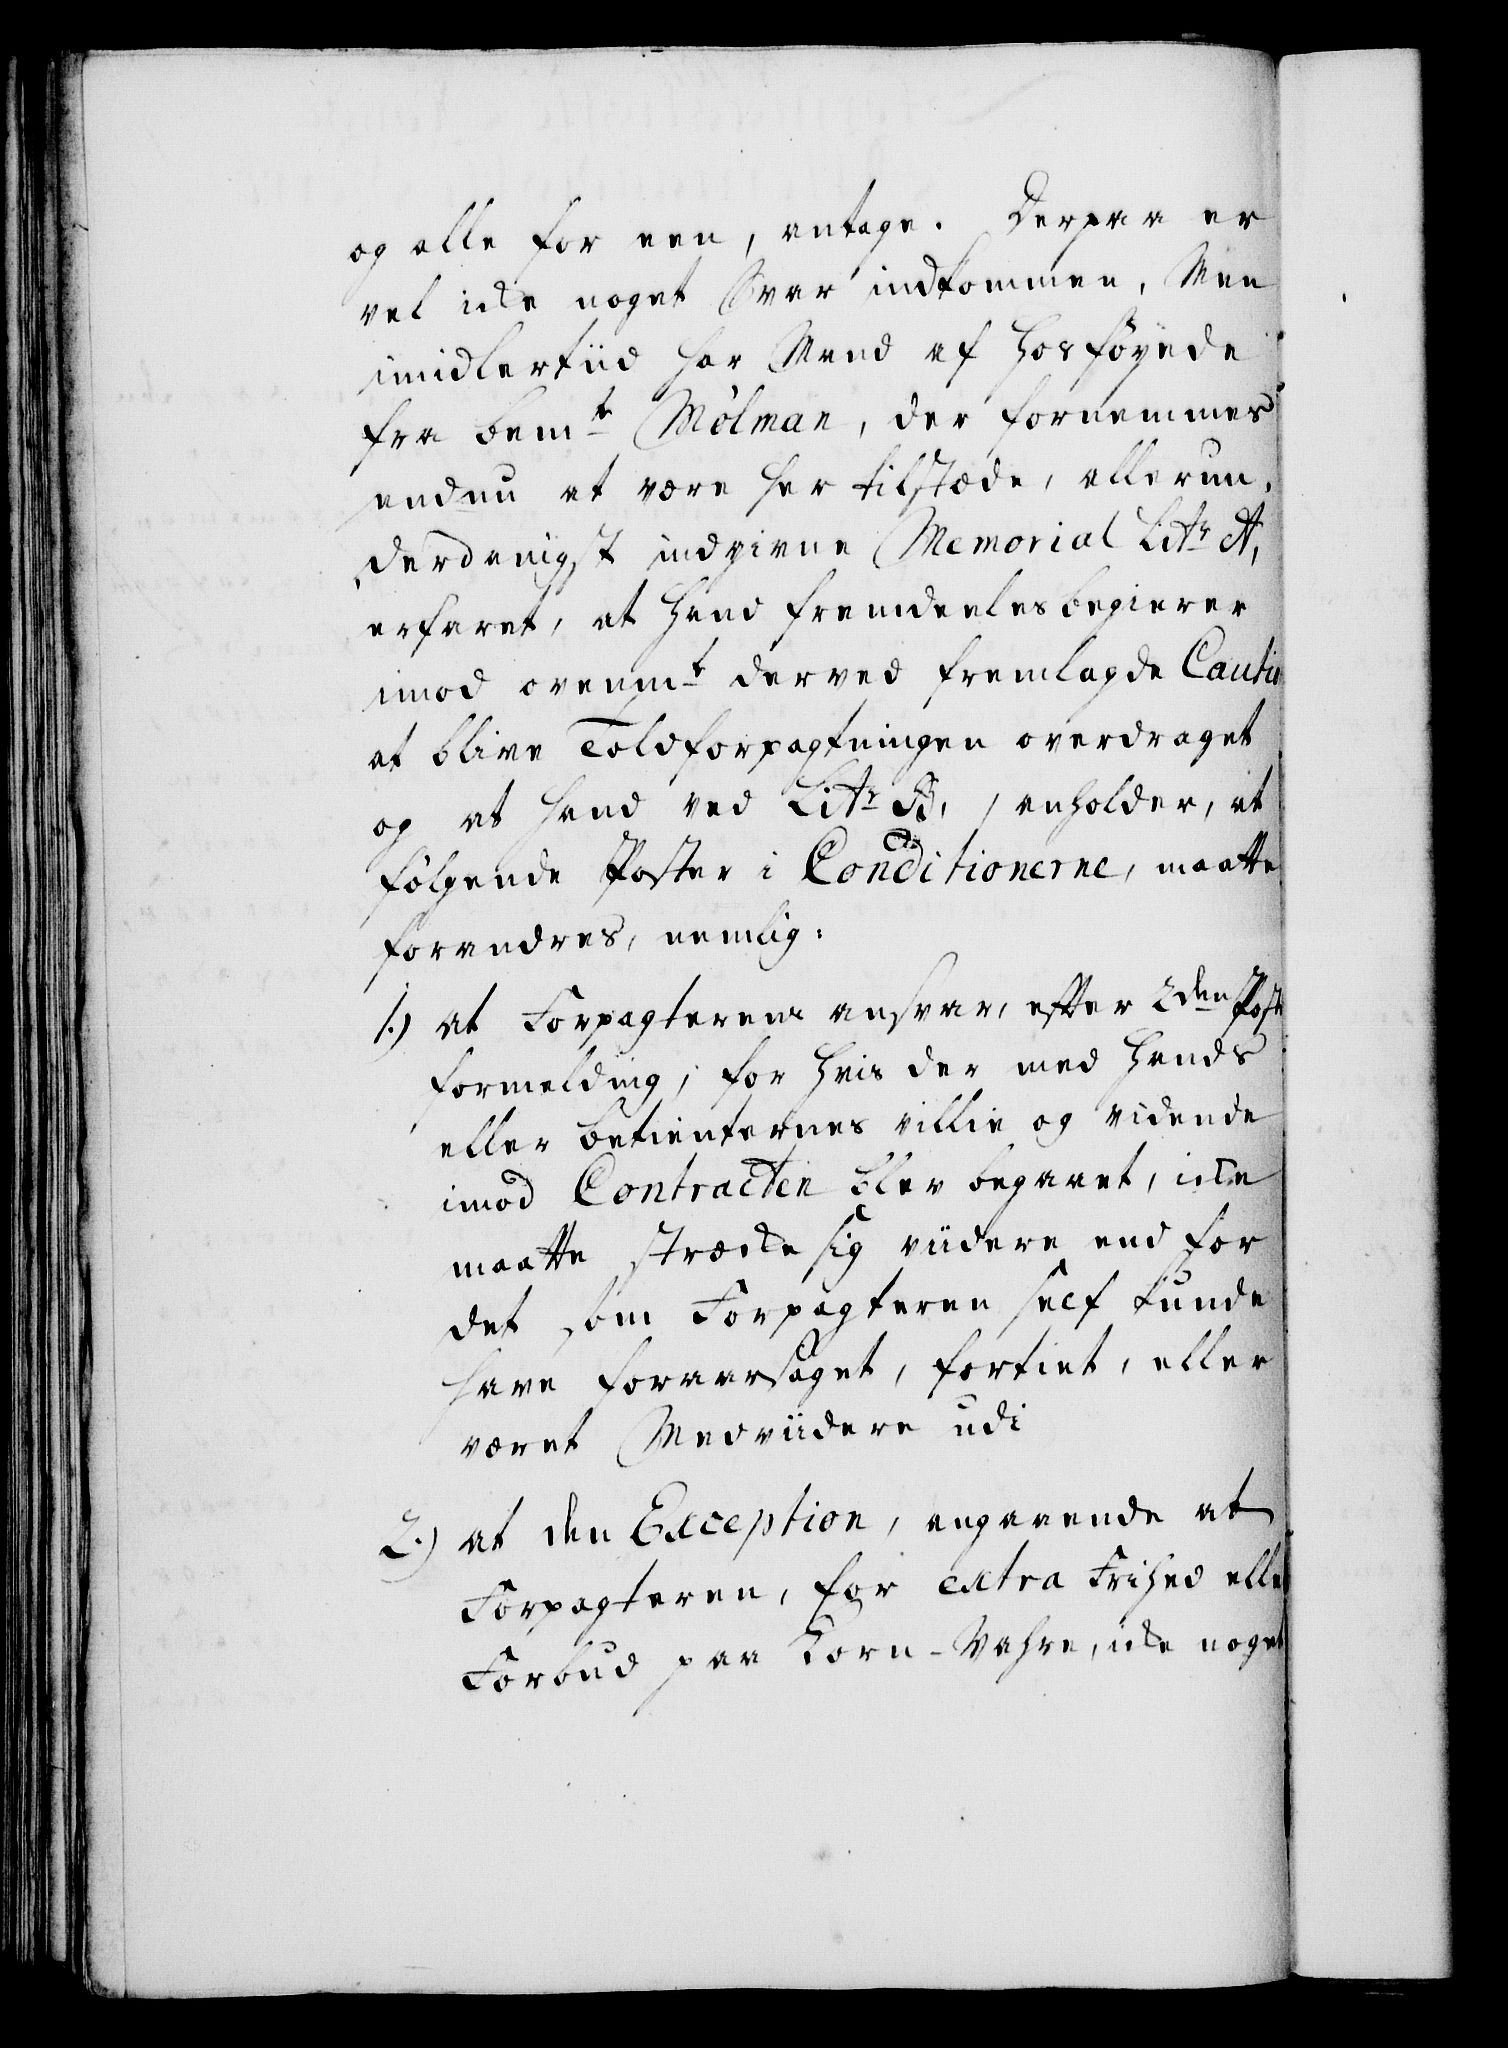 og alle for een, antage. Derpaa er
vel icke noget Svar indkommen, Men
imidlertiid har Mand af hosføyede
fra bemt Mølman, der fornemmes
endnu at være her tilstæde, allerun-
derdanigst indgivne Memorial Litr A,
erfaret, at hand fremdeeles begierer
imod ovenmt derved fremlagde Cautio
at blive Toldforpagtningen overdraget
og at hand ved Litr B, anholder, at
følgende Poster i Conditionerne, maatte
forandres, nemlig:
1.) at Forpagterens ansvar, efter 2den Post
formelding, for hvis der med hands
eller betienternes villie og vidende
imod Contracten blev begaaet, icke
maatte strække sig viidere end for
det som Forpagteren self kunde
have foraarsaget, fortiet, eller
været Medviidere udi
2.) at den Exception, angaaende at
Forpagteren, for extra Frihed elle
Forbud paa Korn-Vahre, icke noget